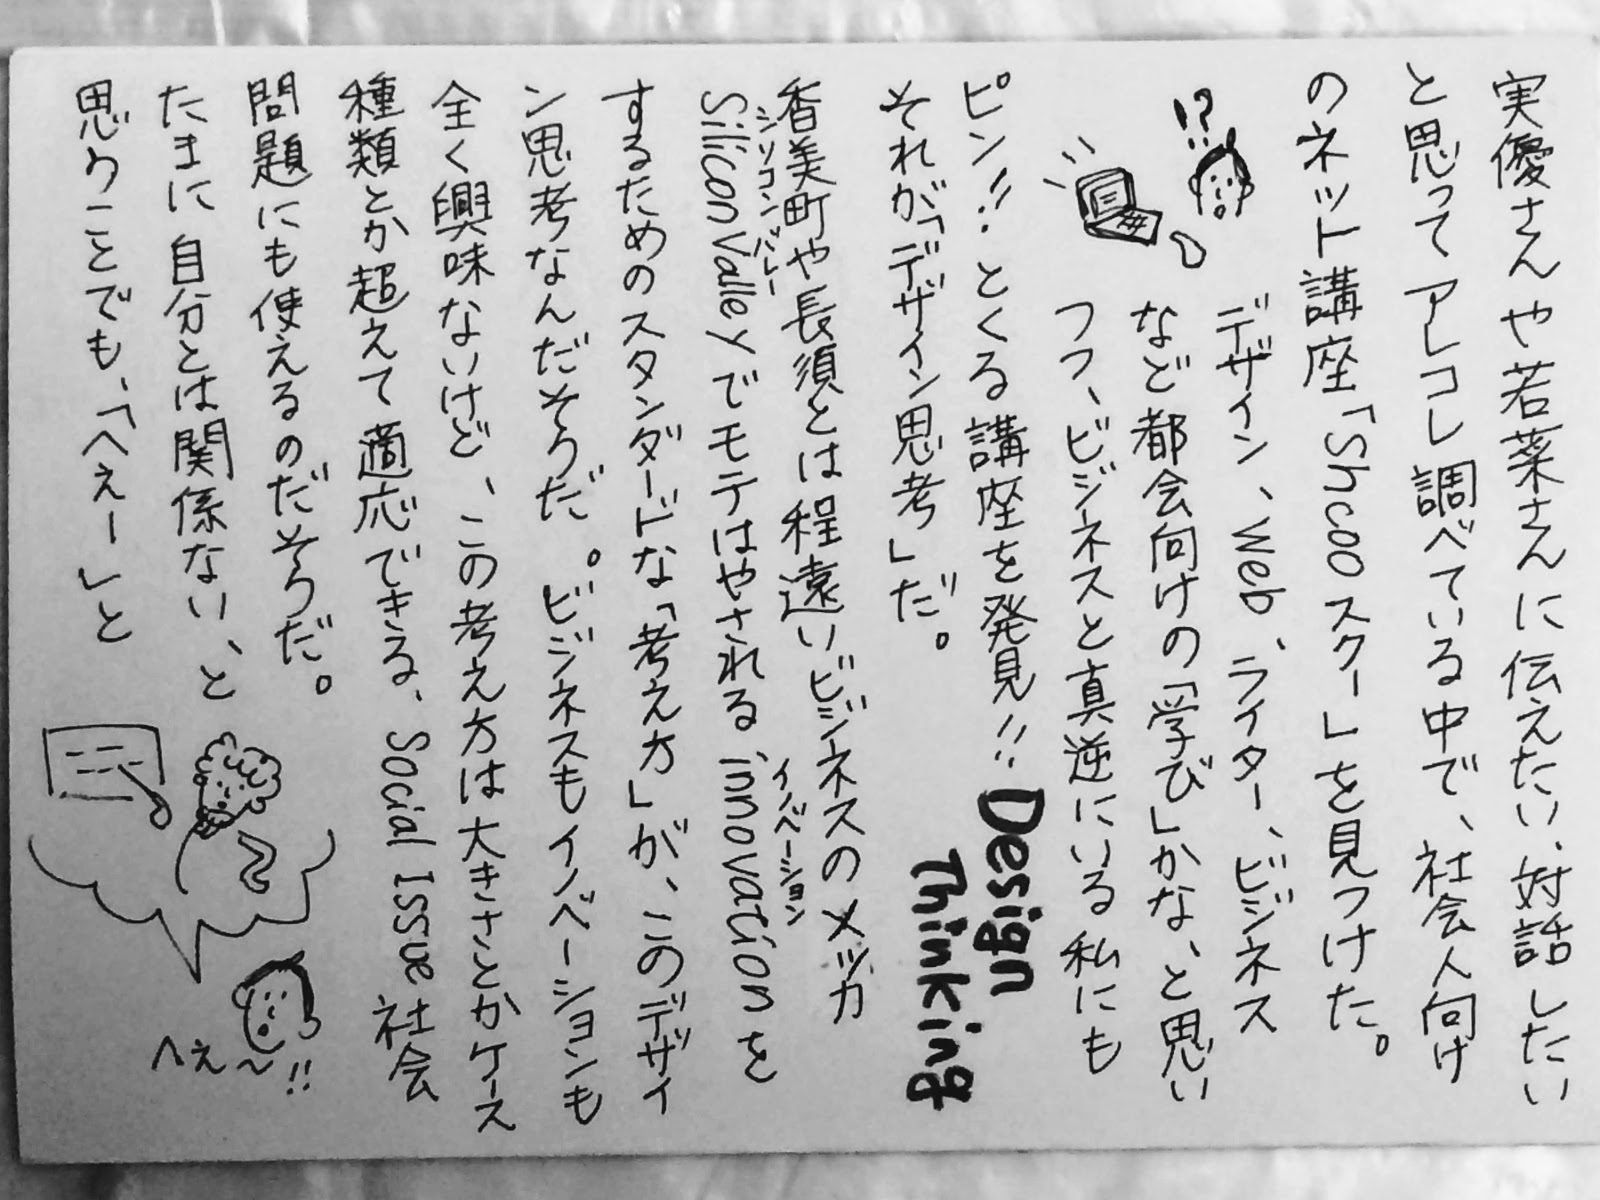 実優さんや若菜さんに伝えたい、対話したい
と思ってアレコレ調べている中で、社会人向け
のネット講座「Shcooスクー」を見つけた。
!?
デザイン、Web、ライター、ビジネス
など都会向けの「学び」かな、と思い
つつ、ビジネスと真逆にいる私にも
ピン!!とくる講座を発見!!
Design
Thinking
それが「デザイン思考」だ。
香美町や長須とは程遠いビジネスのメッカ
シリコンバレー
Silicon Valleyでモテはやされるinnovationを
イノベーション
するためのスタンダードな「考え方」が、このデザイ
ン思考なんだそうだ。ビジネスもイノベーションも
全く興味ないけど、この考え方は大きさとかケース
種類とか超えて適応できる、Social Issue 社会
問題にも使えるのだそうだ。
たまに自分とは関係ない、と
思うことでも、「へぇー」と
へぇ〜!!